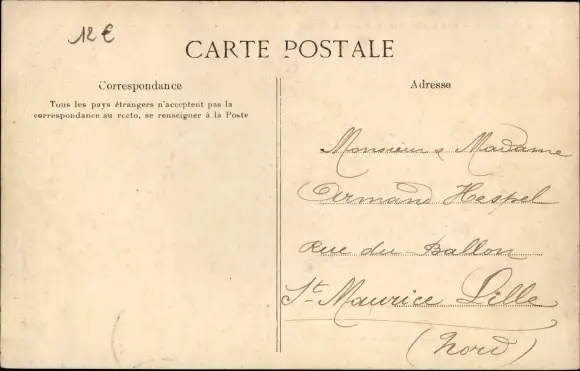 12€
CARTE POSTALE
Correspondance
Tous les pays étrangers n'acceptent pas la
correspondance au recto, se renseigner à la Poste
Adresse
Monsieur & Madame
Armand Hespel
Rue du Ballon
St Maurice Lille
(Nord)